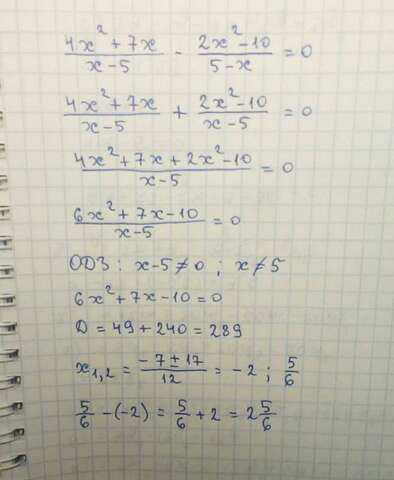 (4x² + 7x)/(x - 5) - (2x² - 10)/(5 - x) = 0
(4x² + 7x)/(x - 5) + (2x² - 10)/(x - 5) = 0
(4x² + 7x + 2x² - 10)/(x - 5) = 0
(6x² + 7x - 10)/(x - 5) = 0
ОДЗ: x - 5 ≠ 0 ; x ≠ 5
6x² + 7x - 10 = 0
D = 49 + 240 = 289
x₁,₂ = (-7 ± 17)/12 = -2 ; 5/6
5/6 - (-2) = 5/6 + 2 = 2 5/6